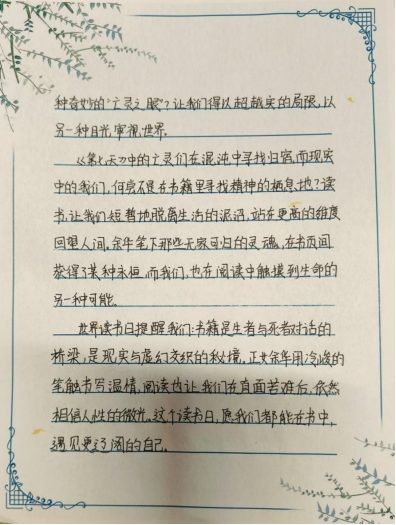 种奇妙的“亡灵之眼”？让我们得以超越实的局限，以
另一种目光，审视世界。
《第七天》中的亡灵们在混沌中寻找归宿，而现实
中的我们，何尝不是在书籍里寻找精神的栖息地？读
书，让我们短暂地脱离生活的泥沼，站在更高的维度
回望人间。余华笔下那些无家可归的灵魂，在书页间
获得了某种永恒，而我们，也在阅读中触摸到生命的
另一种可能。
世界读书日提醒我们：书籍是生者与死者对话的
桥梁，是现实与虚幻交织的秘境，正如余华用冷峻的
笔触书写温情，阅读也让我们在直面苦难后，依然
相信人性的微光。这个读书日，愿我们都能在书中，
遇见更辽阔的自己。